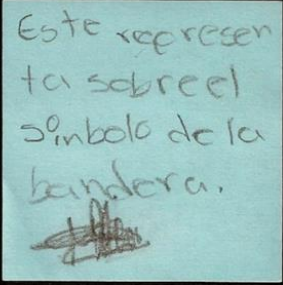 Este represen
ta sobre el
sinbolo de la
bandera.